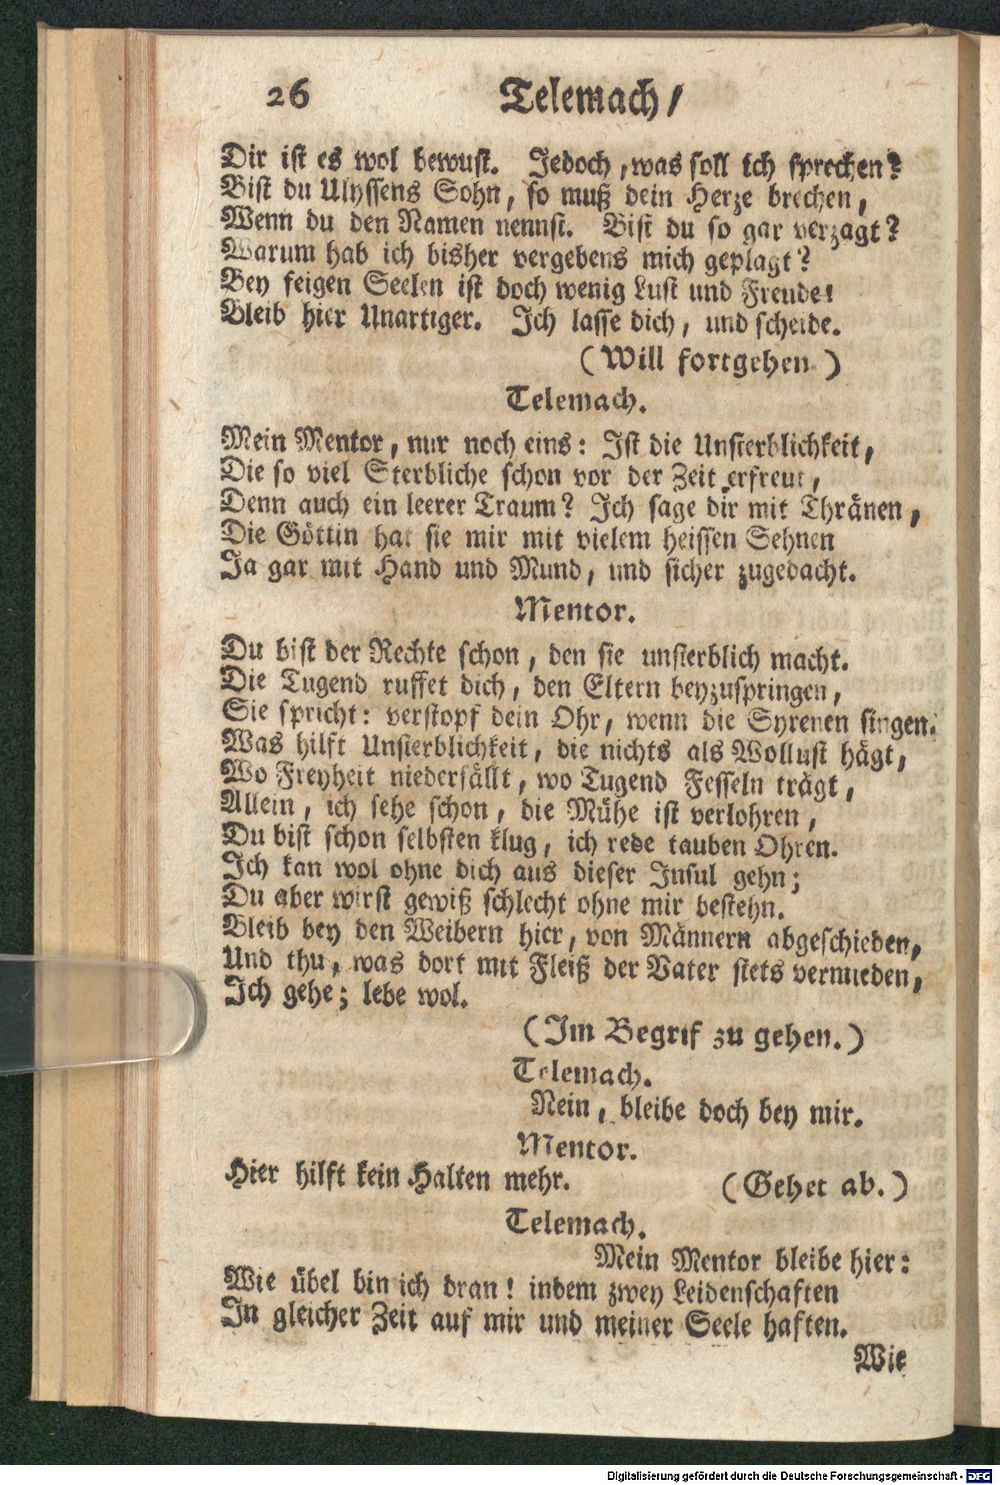 26 Telemach/
Dir ist es wol bewust. Jedoch, was soll ich sprechen?
Bist du Ulyssens Sohn, so muß dein Herze brechen,
Wenn du den Namen nennst. Bist du so gar verzagt?
Warum hab ich bisher vergebens mich geplagt?
Bey feigen Seelen ist doch wenig Lust und Freude!
Bleib hier Unartiger. Ich lasse dich, und scheide.
(Will fortgehen)
Telemach.
Mein Mentor, nur noch eins: Ist die Unsterblichkeit,
Die so viel Sterbliche schon vor der Zeit erfreut,
Denn auch ein leerer Traum? Ich sage dir mit Thränen,
Die Göttin hat sie mir mit vielem heissen Sehnen
Ja gar mit Hand und Mund, und sicher zugedacht.
Mentor.
Du bist der Rechte schon, den sie unsterblich macht.
Die Tugend ruffet dich, den Eltern beyzuspringen,
Sie spricht: verstopf dein Ohr, wenn die Syrenen singen.
Was hilft Unsterblichkeit, die nichts als Wollust hägt,
Wo Freyheit niederfällt, wo Tugend Fesseln trägt,
Allein, ich sehe schon, die Mühe ist verlohren,
Du bist schon selbsten klug, ich rede tauben Ohren.
Ich kan wol ohne dich aus dieser Insul gehn;
Du aber wirst gewiß schlecht ohne mir bestehn.
Bleib bey den Weibern hier, von Männern abgeschieden,
Und thu, was dort mit Fleiß der Vater stets vermieden,
Ich gehe; lebe wol.
(Im Begrif zu gehen.)
Telemach.
Nein, bleibe doch bey mir.
Mentor.
Hier hilft kein Halten mehr. (Gehet ab.)
Telemach.
Mein Mentor bleibe hier:
Wie übel bin ich dran! indem zwey Leidenschaften
In gleicher Zeit auf mir und meiner Seele haften.
Wie
Digitalisierung gefördert durch die Deutsche Forschungsgemeinschaft - DFG